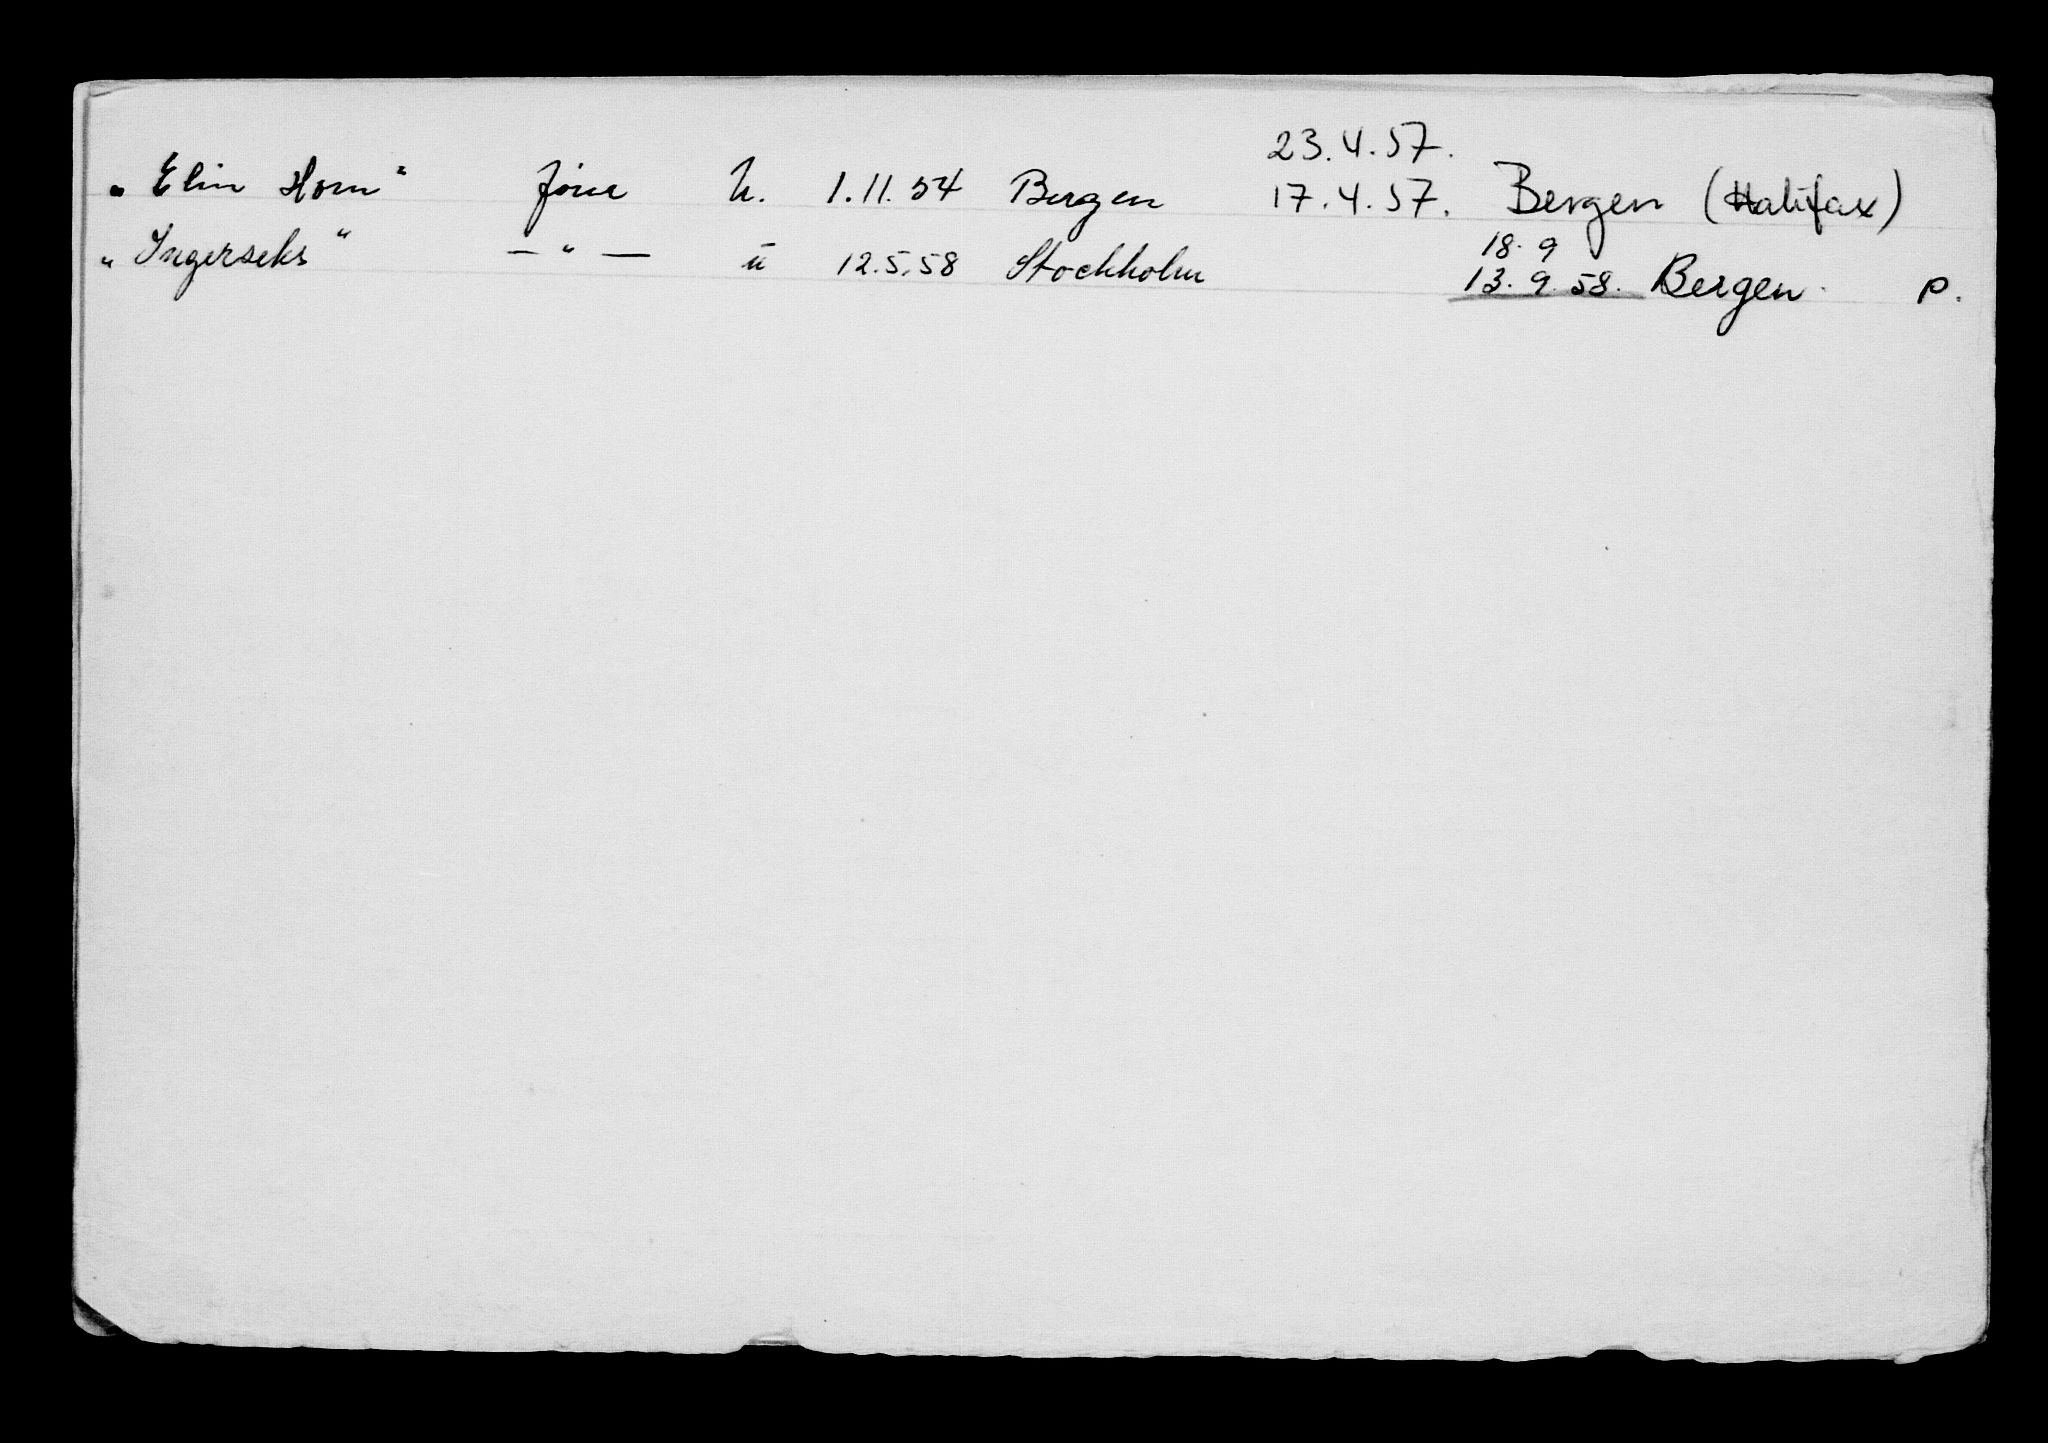 23.4.57.
"Elin Horn" U. 1.11.54 Bergen 17.4.57. Bergen (Halifax)
18.9
"Ingerseks" — " — ū 12.5.58 Stockholm 13.9.58. Bergen. P.